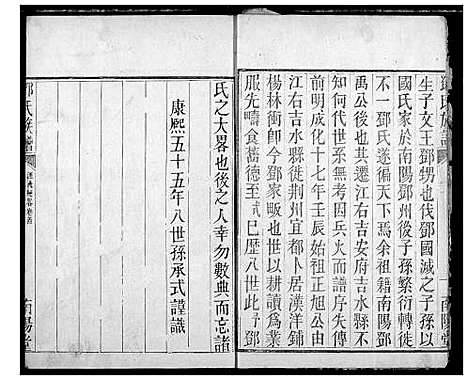 鄧氏族譜
南陽堂
生子文王鄧甥也伐鄧國滅之子孫以
國氏家於南陽鄧州後子孫繁衍轉徙
不一鄧氏遂徧天下焉余祖籍南陽鄧
州後公也其遷江右吉安府吉水縣不
知何代世系無考因兵火而譜序失傳
前明成化十七年壬辰始祖正旭公由
江右吉水縣徙荆州宜都卜居漢洋鋪
楊林衝卽今鄧家畈也世以耕讀爲業
服先疇食舊德至於巳歷八世此鄧
氏之大畧也後之人幸勿數典而忘諸
康熙五十五年八世孫承式謹識
鄧氏族譜
南陽堂